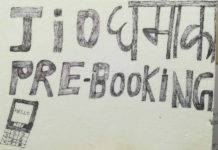 Jio धमाक
PRE-BOOKING
HELLO